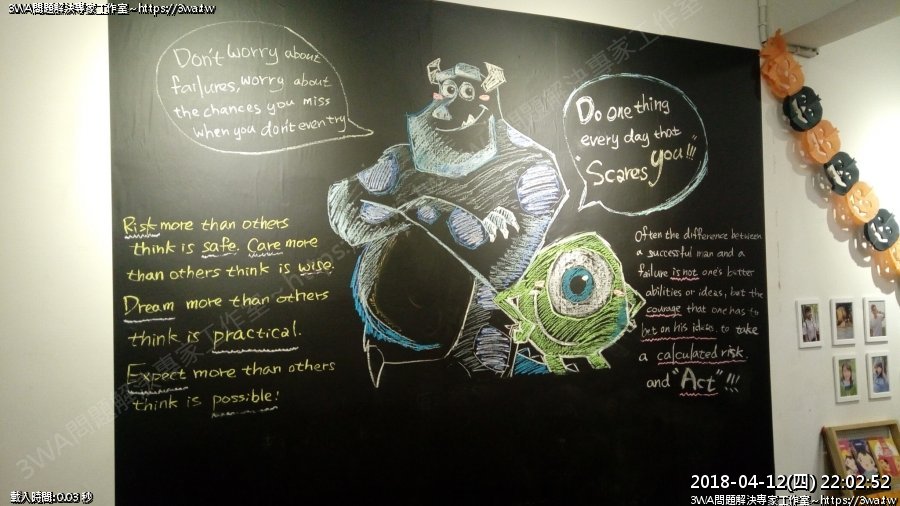 3WA問題解決專家工作室~https://3wa.tw
Don't worry about
failures, worry about
the chances you miss
when you don't even try
Do one thing
every day that
"Scares you"!!!
Risk more than others
think is safe. Care more
than others think is wise.
Dream more than others
think is practical.
Expect more than others
think is possible!
Often the difference between
a successful man and a
failure is not one's better
abilities or ideas, but the
courage that one has to
bet on his ideas, to take
a calculated risk.
and "Act"!!!
3WA問題解決專家工作室~https://3wa.tw
載入時間:0.03 秒
2018-04-12(四) 22:02:52
3WA問題解決專家工作室~https://3wa.tw